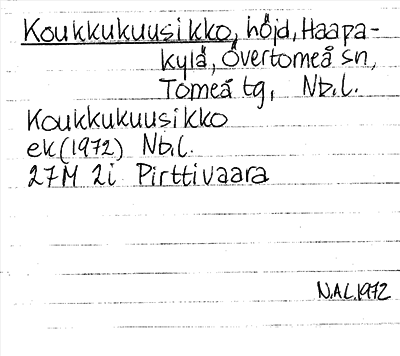 Koukkukuusikko, höjd, Haapa-
kylä, Övertorneå sn,
Torneå tg, Nb.l.
Koukkukuusikko
ek (1972) Nb.l.
27M 2i Pirttivaara
N.A.L. 1972